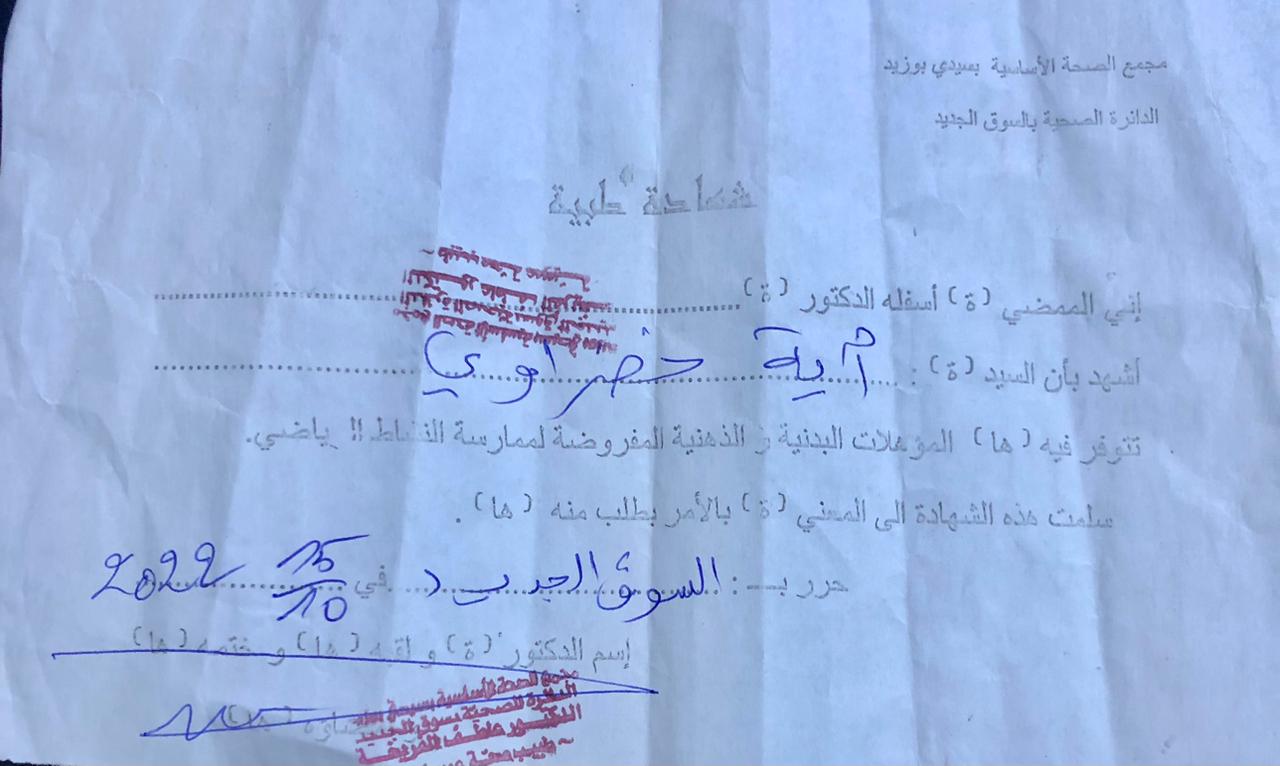 مجمع الصحة الأساسية بسيدي بوزيد
الدائرة الصحية بالسوق الجديد
شهادة طبية
إني الممضي (ة) أسفله الدكتور (ة)
أشهد بأن السيد (ة) : آية خضراوي
تتوفر فيه (ها) المؤهلات البدنية و الذهنية المفروضة لممارسة النشاط الرياضي.
سلمت هذه الشهادة الى المعني (ة) بالأمر بطلب منه (ها) .
حرر بـ : السوق الجديد في 15/10 2022
إسم الدكتور (ة) و لقبه (ها) و ختمه (ها)
مجمع الصحة الأساسية بسيدي
الدائرة الصحية بسوق الجديد
الدكتور عاطف
طبيب صحة